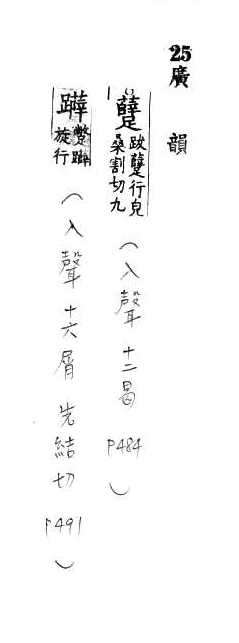 25廣韻
躠 跋躠行皃桑割切九（入聲十二曷 P484）
蹩躠旋行（入聲十六屑 先結切 P491）